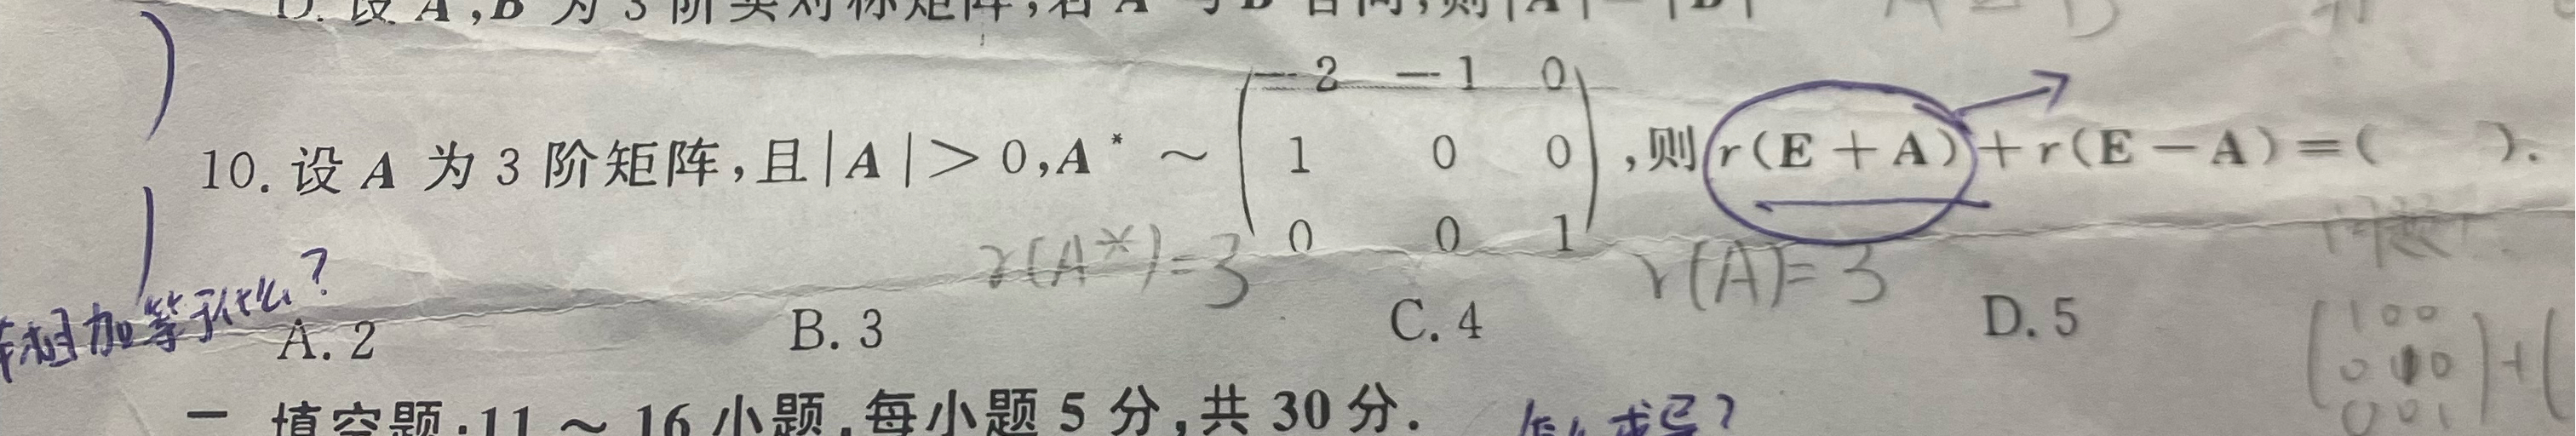 D. 设 A,B 为 3 阶实对称矩阵,若 A 与 B 合同,则|A|=|B|
10. 设 A 为 3 阶矩阵,且|A|>0,A* ~ (-2 -1 0
1 0 0
0 0 1),则 r(E+A)+r(E-A)=( ).
r(A*)=3 r(A)=3
相加等于什么?
A. 2 B. 3 C. 4 D. 5
(1 0 0
0 1 0
0 0 1)+(
二 填空题:11~16 小题,每小题 5 分,共 30 分.
怎么求导?